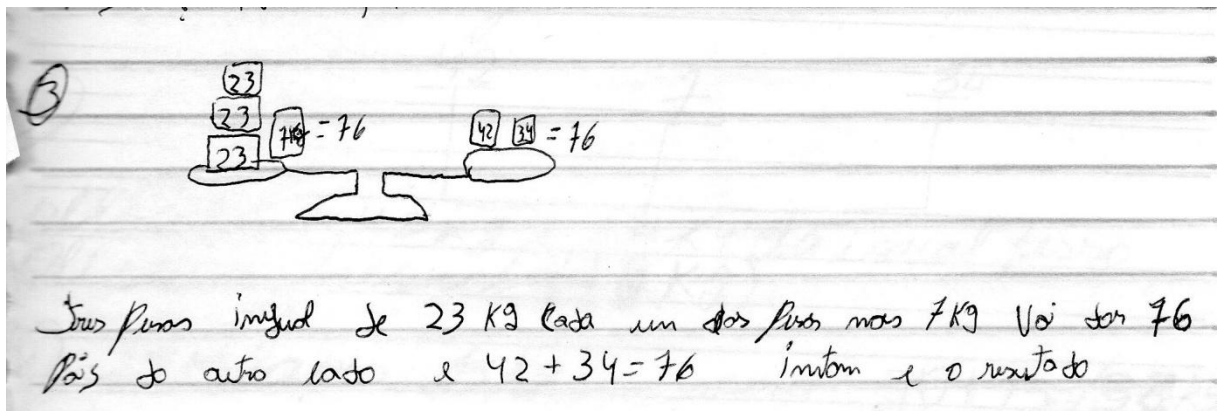 3
23
23 = 76 42 34 = 76
23
Tres Pesos ingual de 23 Kg Cada um dos Pesos mas 7Kg Vai dar 76
Pois do outro lado e 42 + 34 = 76 intom e o resutado